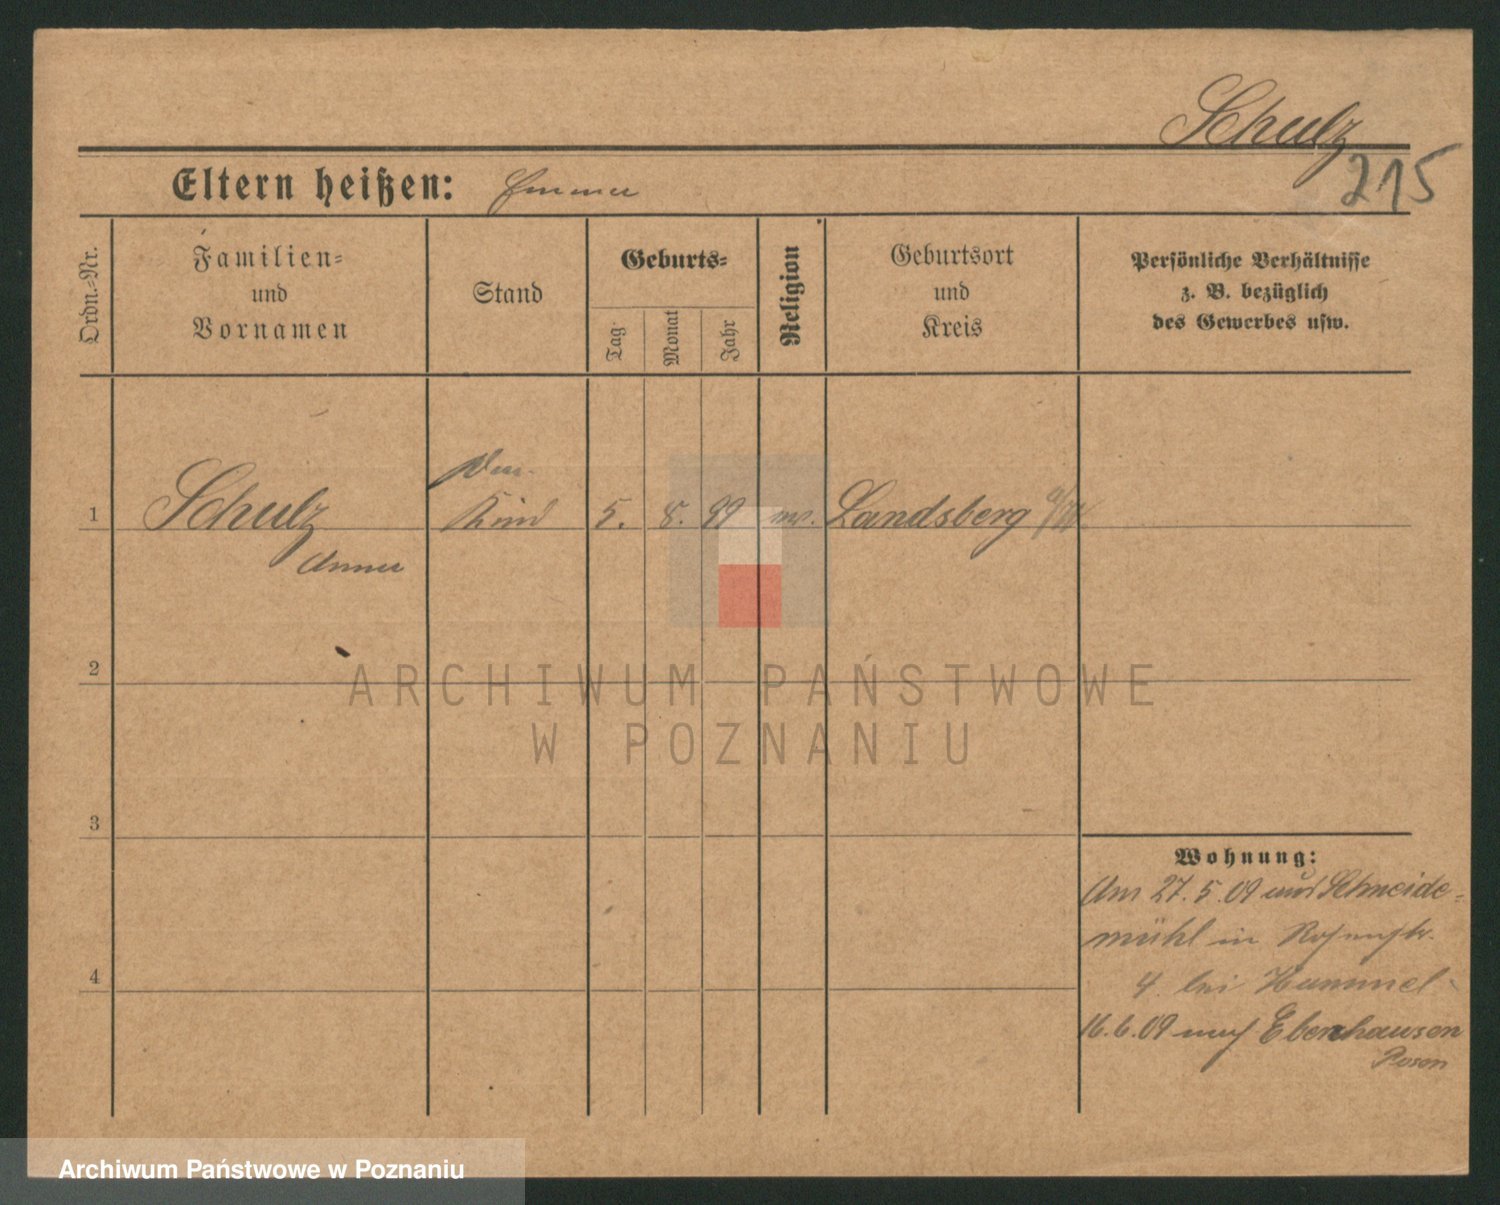 Schulz
215
Eltern heißen: Emma
Ordn.-Nr.
Familien-
und
Vornamen
Stand
Geburts-
Tag
Monat
Jahr
Religion
Geburtsort
und
Kreis
Persönliche Verhältnisse
z. B. bezüglich
des Gewerbes usw.
1 Schulz Kind 5. 8. 99 ev. Landsberg a/W
Anna
2
ARCHIWUM PAŃSTWOWE
W POZNANIU
3
4
Wohnung:
Am 27.5.09 aus Schneide-
mühl in Rosenstr.
4 bei Hummel
16.6.09 nach Ebenhausen
Posen
Archiwum Państwowe w Poznaniu